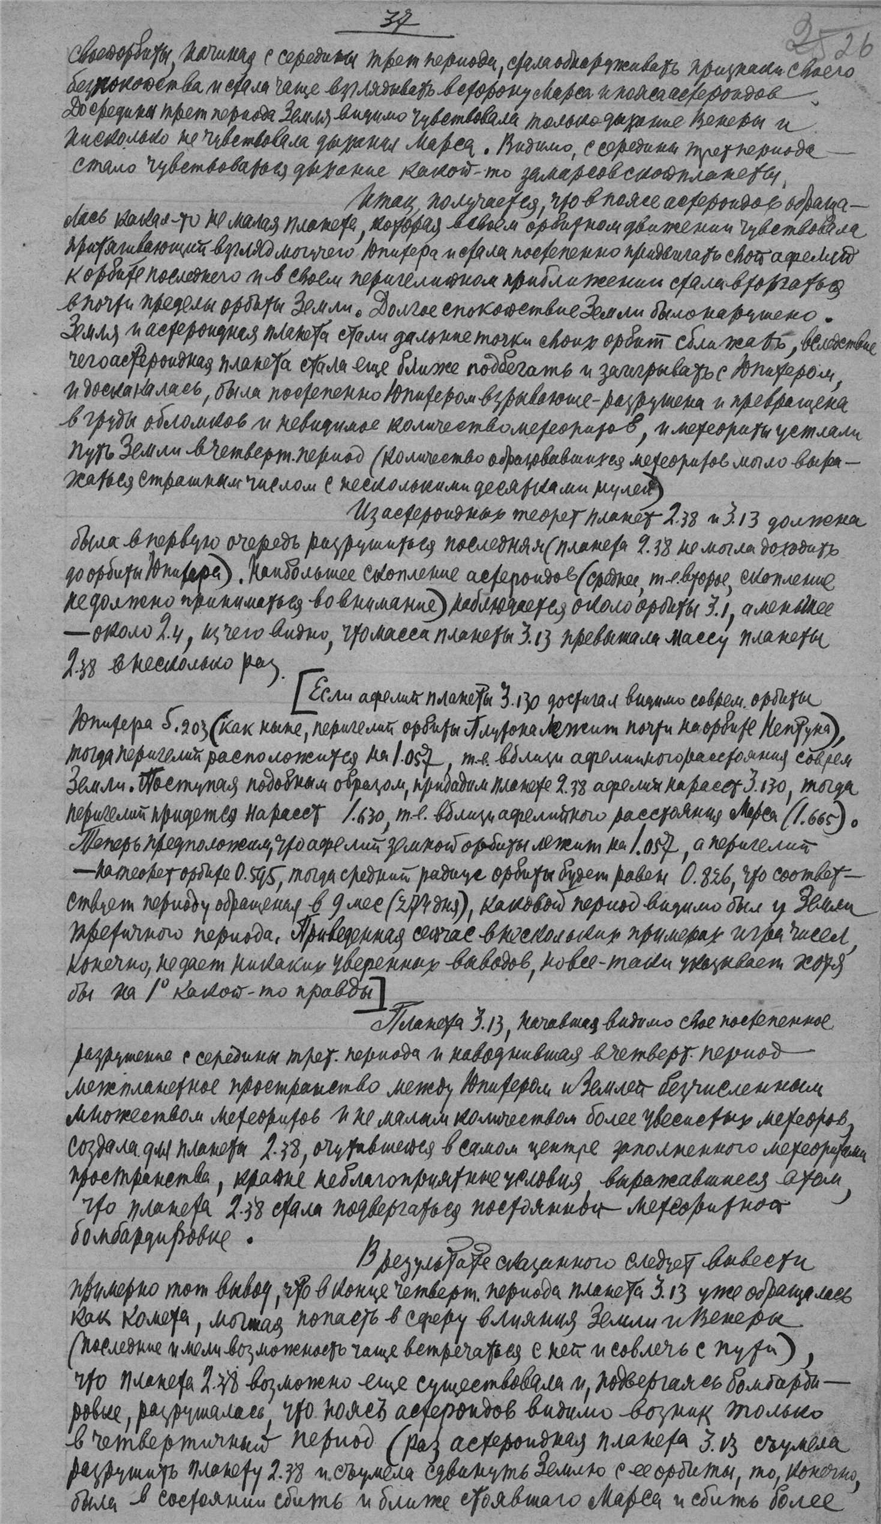 37
25 26
своей орбиты, начиная с середины трет периода, стала обнаруживать признаки своего
беспокойства и стала чаще взглядывать в сторону Марса и пояса астероидов.
До средины трет периода Земля видимо чувствовала только дыхание Венеры и
нисколько не чувствовала дыхания Марса. Видимо, с середины трет периода —
стало чувствоваться дыхание какой-то замарсовской планеты.
Итак, получается, что в поясе астероидов обраща-
лась какая-то не малая планета, которая в своем орбитном движении чувствовала
притягивающий взгляд могучего Юпитера и стала постепенно придвигать свой афелий
к орбите последнего и в своем перигелийном приближении стала вторгаться
в почти пределы орбиты Земли. Долгое спокойствие Земли было нарушено.
Земля и астероидная планета стали дальние точки своих орбит сближать, вследствие
чего астероидная планета стала еще ближе подбегать и заигрывать с Юпитером,
и доскакалась, была постепенно Юпитером взрывающе-разрушена и превращена
в груды обломков и невидимое количество метеоритов, и метеориты устлали
путь Земли в четверт. период (количество образовавшихся метеоритов могло выра-
жаться страшным числом с несколькими десятками нулей)
Из астероидных теорет планет 2.38 и 3.13 должна
была в первую очередь разрушиться последняя (планета 2.38 не могла доходить
до орбиты Юпитера). Наибольшее скопление астероидов (среднее, т.е второе, скопление
не должно приниматься во внимание) наблюдается около орбиты 3.1, а меньшее
— около 2.4, из чего видно, что масса планеты 3.13 превышала массу планеты
2.38 в несколько раз.
[Если афелий планеты 3.130 достигал видимо соврем. орбиты
Юпитера 5.203 (как ныне, перигелий орбиты Плутона лежит почти на орбите Нептуна),
тогда перигелий расположится на 1.057, т.е. вблизи афелийного расстояния соврем
Земли. Поступая подобным образом, придадим планете 2.38 афелий на расст 3.130, тогда
перигелий придется на расст 1.630, т.е. вблизи афелийного расстояния Марса (1.665).
Теперь предположим, что афелий земной орбиты лежит на 1.057, а перигелий
— на теорет орбите 0.595, тогда средний радиус орбиты будет равен 0.826, что соответ-
ствует периоду обращения в 9 мес (274 дня), каковой период видимо был у Земли
третичного периода. Приведенная сейчас в нескольких примерах игра чисел,
конечно, не дает никаких уверенных выводов, но все-таки указывает хотя
бы на 1° какой-то правды]
Планета 3.13, начавшая видимо свое постепенное
разрушение с середины трет. периода и наводнившая в четверт. период —
межпланетное пространство между Юпитером и Землей безчисленным
множеством метеоритов и не малым количеством более увесистых метеоров,
создала для планеты 2.38, очутившейся в самом центре заполненного метеоритами
пространства, крайне неблагоприятные условия выражавшиеся в том,
что планета 2.38 стала подвергаться постоянной метеоритной
бомбардировке.
В результате сказанного следует вывести
примерно тот вывод, что в конце четверт. периода планета 3.13 уже обращалась
как комета, могшая попасть в сферу влияния Земли и Венеры
(последние имели возможность чаще встречаться с ней и совлечь с пути),
что планета 2.38 возможно еще существовала и, подвергаясь бомбарди-
ровке, разрушалась, что пояс астероидов видимо возник только
в четвертичный период (раз астероидная планета 3.13 съумела
разрушить планету 2.38 и съумела сдвинуть Землю с ее орбиты, то, конечно,
была в состоянии сбить и ближе стоявшаго Марса и сбить более